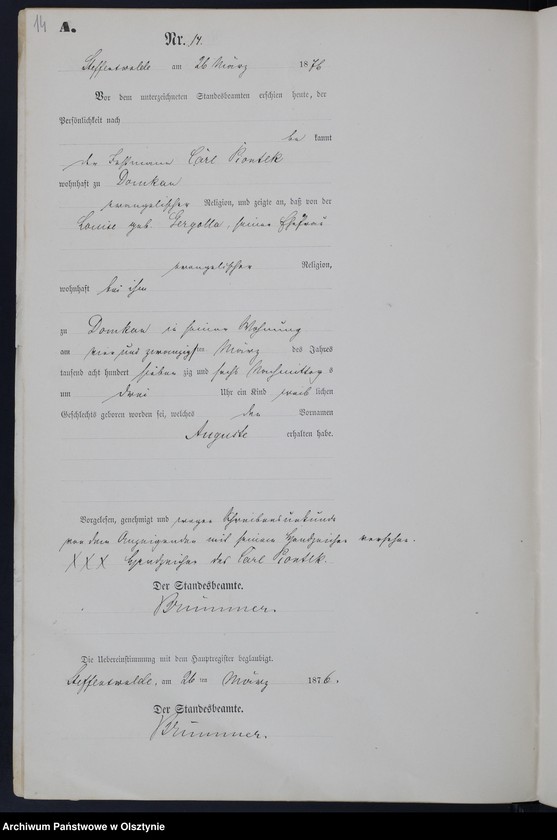 14
A.
Nr. 14.
Steffenswalde am 26 März 1876
Vor dem unterzeichneten Standesbeamten erschien heute, der
Persönlichkeit nach
be kannt
der Carl Piontek
wohnhaft zu Domkau
evangelischer Religion, und zeigte an, daß von der
Louise geb. Gergolla, seiner Ehefrau
evangelischer Religion,
wohnhaft bei ihm
zu Domkau in seiner Wohnung
am vier und zwanzigsten März des Jahres
tausend acht hundert sieben zig und sechs Nachmittags
um drei Uhr ein Kind weib lichen
Geschlechts geboren worden sei, welches den Vornamen
Auguste erhalten habe.
Vorgelesen, genehmigt und wegen Schreibensunkunde
von dem Anzeigenden mit seinem Handzeichen versehen.
XXX Handzeichen des Carl Piontek.
Der Standesbeamte.
Brummer.
Die Uebereinstimmung mit dem Hauptregister beglaubigt.
Steffenswalde, am 26 ten März 1876.
Der Standesbeamte.
Brummer.
Archiwum Państwowe w Olsztynie